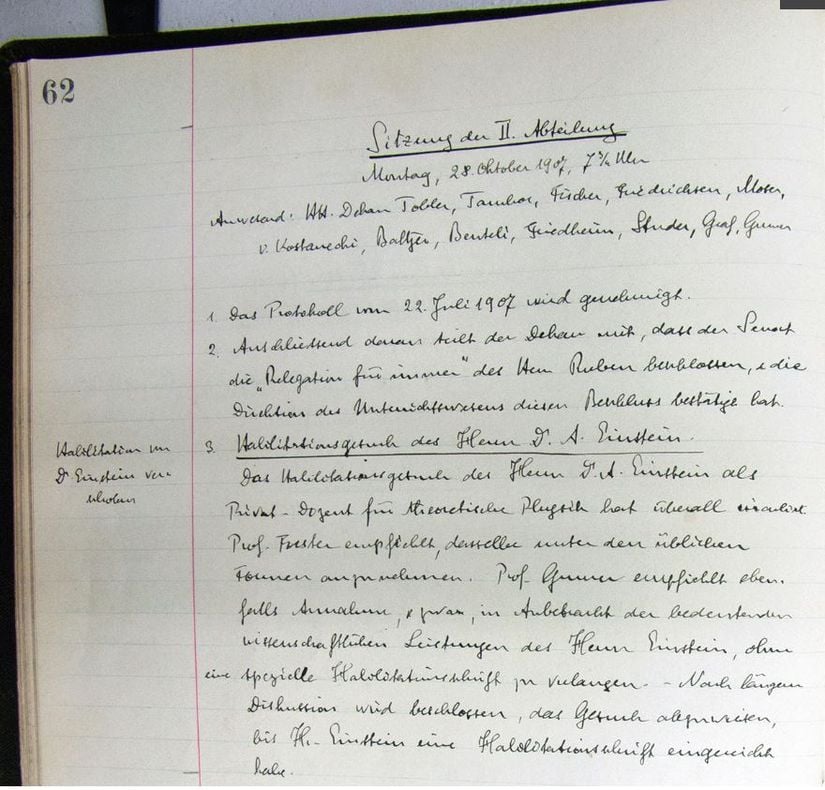 62
Sitzung der II. Abteilung
Montag, 28. Oktober 1907, 7¾ Uhr
Anwesend: HH. Dekan Tobler, Tambor, Fischer, Friedrichsen, Moser,
v. Kostanecki, Baltzer, Benteli, Friedheim, Studer, Graf, Gruner
1. Das Protokoll vom 22. Juli 1907 wird genehmigt.
2. Anschliessend daran teilt der Dekan mit, dass der Senat
die „Relegation für immer" des Herrn Ruben beschlossen, & die
Direktion des Unterrichtswesens diesen Beschluss bestätigt hat.
Habilitation von
Dr Einstein ver
schoben
3. Habilitationsgesuch des Herrn Dr. A. Einstein.
Das Habilitationsgesuch des Herrn Dr. A. Einstein als
Privat-Dozent für theoretische Physik hat überall circuliert.
Prof. Forster empfiehlt, dasselbe unter den üblichen
Formen anzunehmen. Prof. Gruner empfiehlt eben-
falls Annahme, & zwar, in Anbetracht der bedeutenden
wissenschaftlichen Leistungen des Herrn Einstein, ohne
eine spezielle Habilitationsschrift zu verlangen. - Nach längerer
Diskussion wird beschlossen, das Gesuch abzuweisen,
bis Hr. Einstein eine Habilitationsschrift eingereicht
habe.